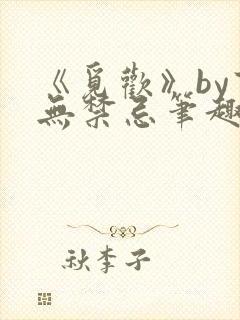 《覓歡》by
無禁忌筆趣
秋李子